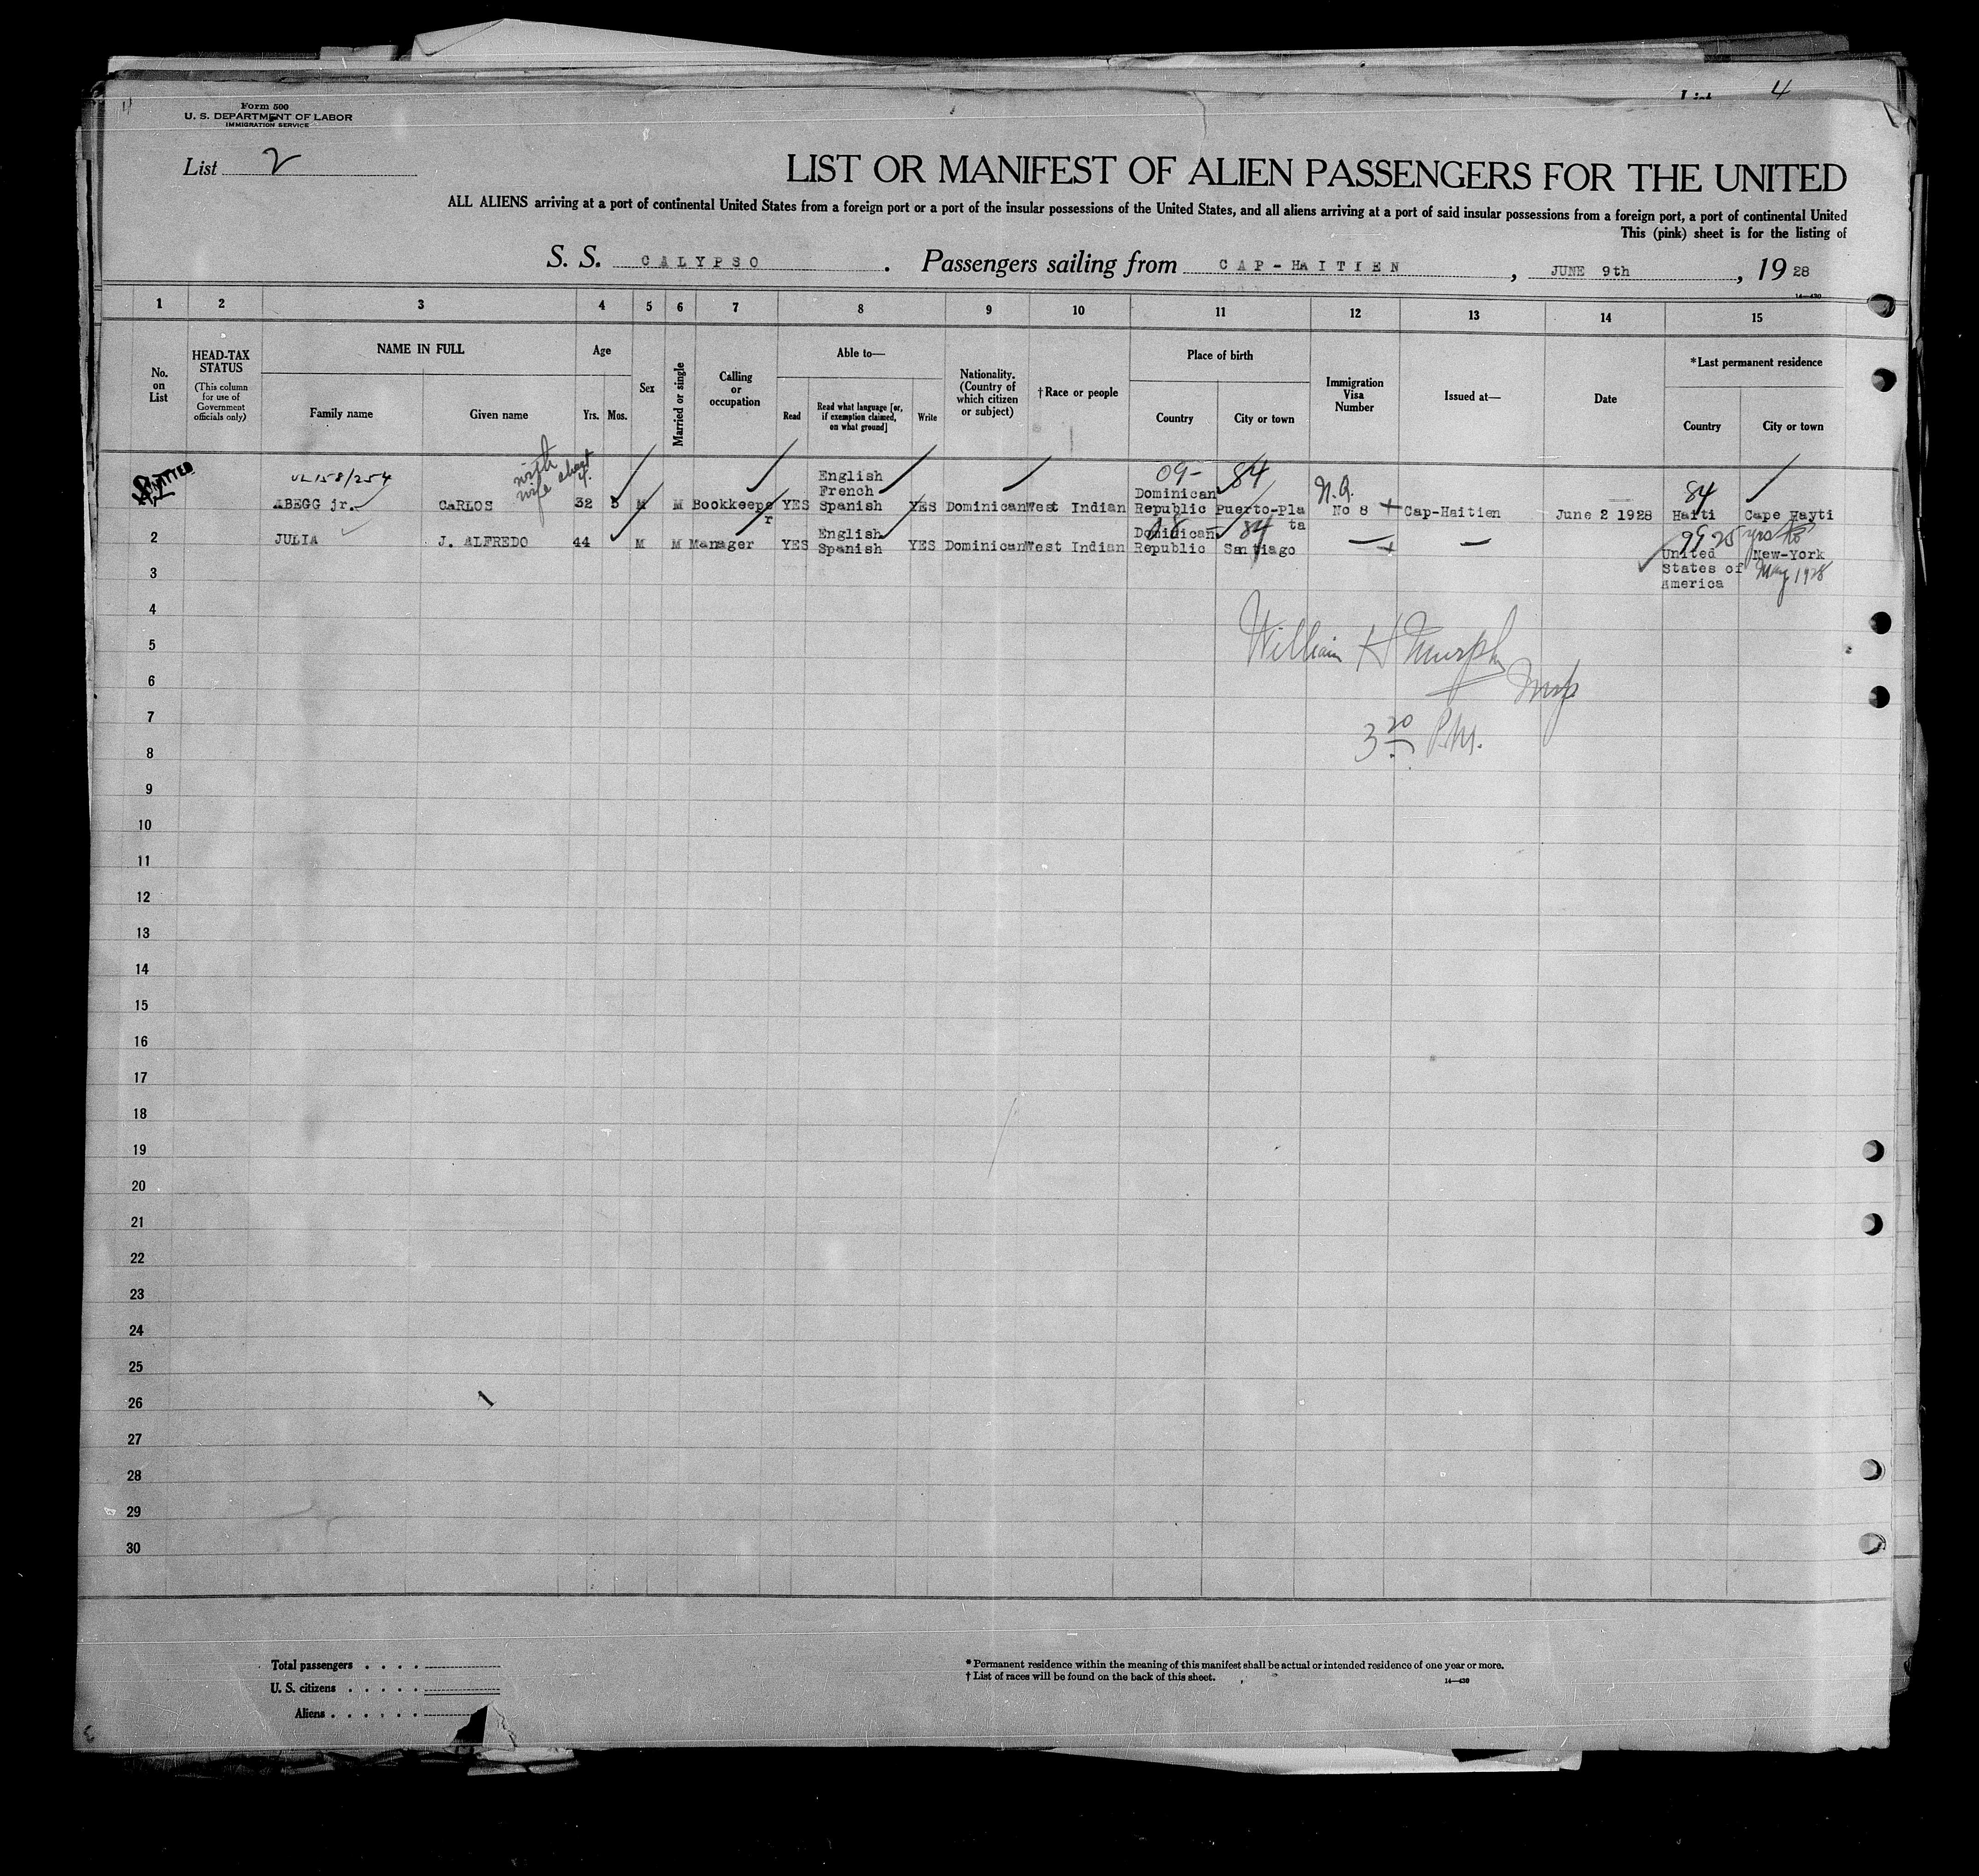 4
Form 500
U. S. DEPARTMENT OF LABOR
IMMIGRATION SERVICE
List 2
LIST OR MANIFEST OF ALIEN PASSENGERS FOR THE UNITED
ALL ALIENS arriving at a port of continental United States from a foreign port or a port of the insular possessions of the United States, and all aliens arriving at a port of said insular possessions from a foreign port, a port of continental United
This (pink) sheet is for the listing of
S. S. CALYPSO . Passengers sailing from CAP-HAITIEN , JUNE 9th , 19 28
14—430
1 2 3 4 5 6 7 8 9 10 11 12 13 14 15
No. on List
HEAD-TAX STATUS
(This column for use of Government officials only)
NAME IN FULL
Family name Given name
Age
Yrs. Mos.
Sex
Married or single
Calling or occupation
Able to—
Read
Read what language [or, if exemption claimed, on what ground]
Write
Nationality. (Country of which citizen or subject)
†Race or people
Place of birth
Country City or town
Immigration Visa Number
Issued at—
Date
*Last permanent residence
Country City or town
UL 158/254 with wife sheet 4.
ABEGG jr. CARLOS 32 5 M M Bookkeeper YES English French Spanish YES Dominican West Indian 09- 84 Dominican Republic Puerto-Plata N.Q. No 8 Cap-Haitien June 2 1928 84 Haiti Cape Hayti
2 JULIA J. ALFREDO 44 M M Manager YES English Spanish YES Dominican West Indian Dominican Republic 84 Santiago — — 99 25 yrs to United States of America New-York May 1928
3
4
5
William H Murphy
6
Insp
7
3 20 P.M.
8
9
10
11
12
13
14
15
16
17
18
19
20
21
22
23
24
25
26
27
28
29
30
Total passengers . . . .
U. S. citizens . . . . .
Aliens . . . . . .
* Permanent residence within the meaning of this manifest shall be actual or intended residence of one year or more.
† List of races will be found on the back of this sheet.
14—430